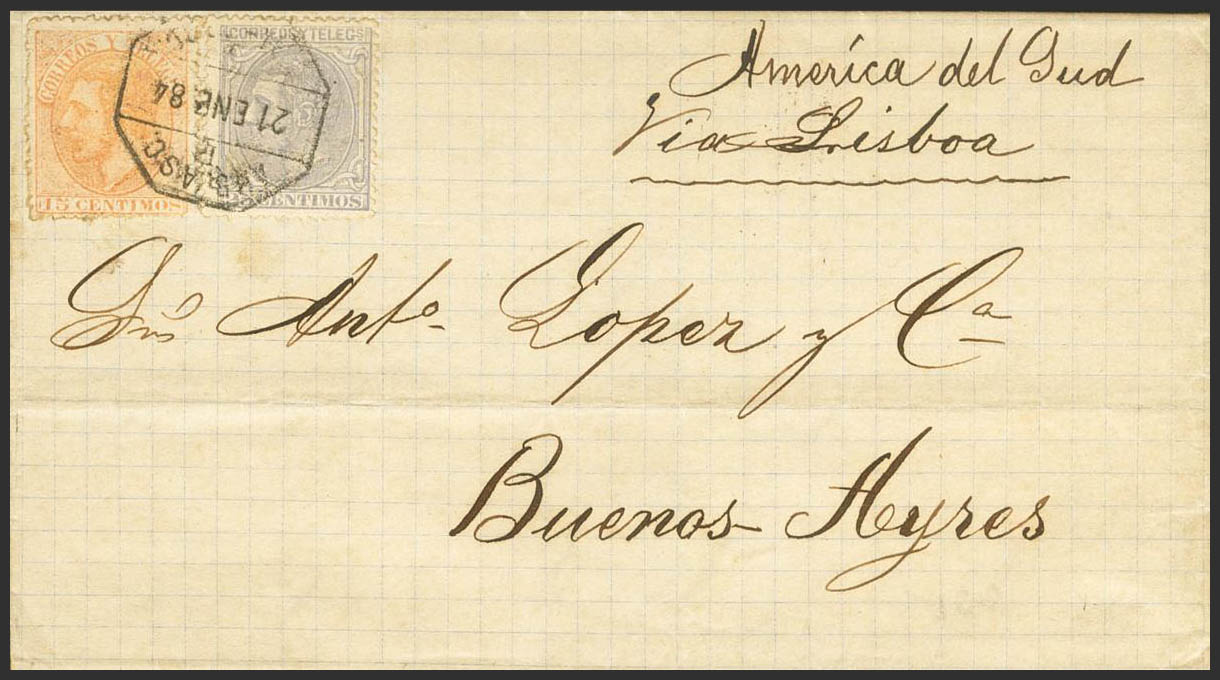 CORREOS Y
15 CENTIMOS
CORREOS Y TELEGS
CENTIMOS
21 ENE 84
America del Sud
Via Lisboa
Sres Anto. Lopez y Ca
Buenos Ayres